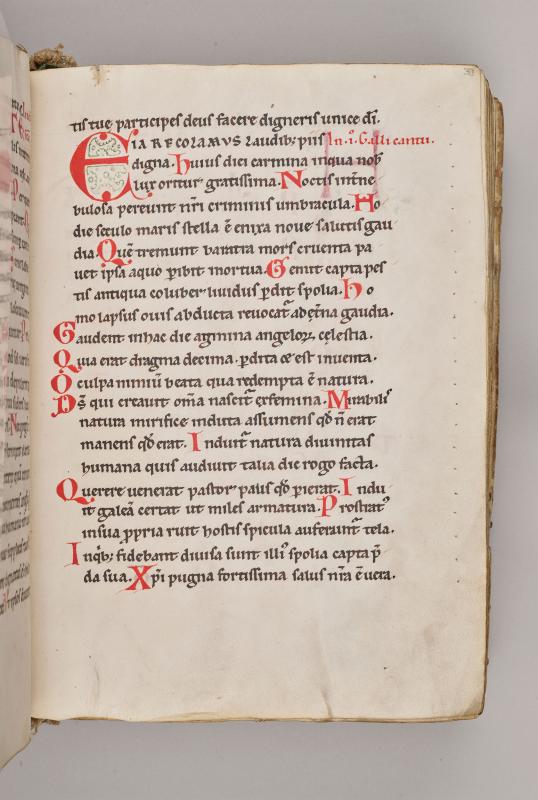 tis tue participes deus facere digneris unice dī.
EIA RECOLAMUS laudib; piis In .i. Galli cantu.
digna. Huius diei carmina inqua nob
lux oritur gratissima. Noctis inťne
bulosa pereunt nr̄i criminis umbracula. Ho
die seculo maris stella ē enixa noue salutis gau
dia. Quē tremunt baratra mors cruenta pa
uet ipsa aquo pibit mortua. Gemit capta pes
tis antiqua coluber liuidus pdit spolia. Ho
mo lapsus ouis abducta reuocat᷑ adet̄na gaudia.
Gaudent inhac die agmina angeloꝝ celestia.
Quia erat dragma decima. pdita & est inuenta.
O culpa nimiū beata qua redempta ē natura.
Ds̄ qui creauit om̄a nascit᷑ exfemina. Mirabilis
natura mirifice induta assumens qđ n̄ erat
manens qđ erat. Induit᷑ natura diuinitas
humana quis audiuit talia die rogo facta.
Querere uenerat pastor pius qđ pierat. Indu
it galeā certat ut miles armatura. Prostratꝰ
insua ppria ruit hostis spicula auferunt᷑ tela.
Inqb; fidebant diuisa sunt illiꝰ spolia capta p̄
da sua. Xp̄i pugna fortissima salus nr̄a ē uera.